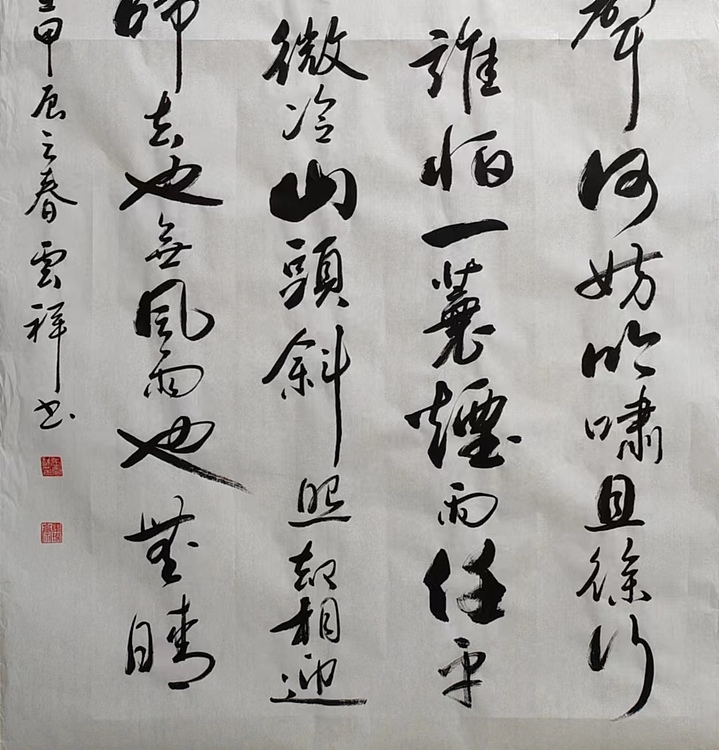 聲何妨吟嘯且徐行
誰怕一蓑煙雨任平
微冷山頭斜照却相迎
歸去也無風雨也無晴
甲辰之春雲祥书